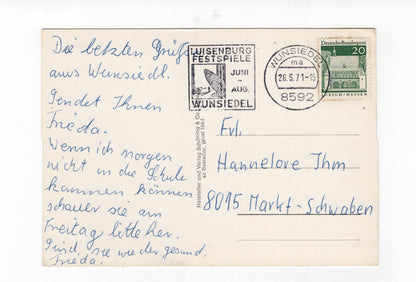 Die letzten Grüße
aus Wunsiedl.
Sendet Ihnen
Frieda.
Wenn ich morgen
nicht in die Schule
kommen können
schauer sie am
Freitag bitte her.
Sind sie wieder gesund.
Frieda.
LUISENBURG
FESTSPIELE
JUNI
-
AUG.
WUNSIEDEL
WUNSIEDEL
ma
26.5.71-15
8592
Deutsche Bundespost
20
LORSCH/HESSEN
Hersteller und Verlag Schöning & Co
Frl.
Hannelore Ihm
8015 Markt-Schwaben